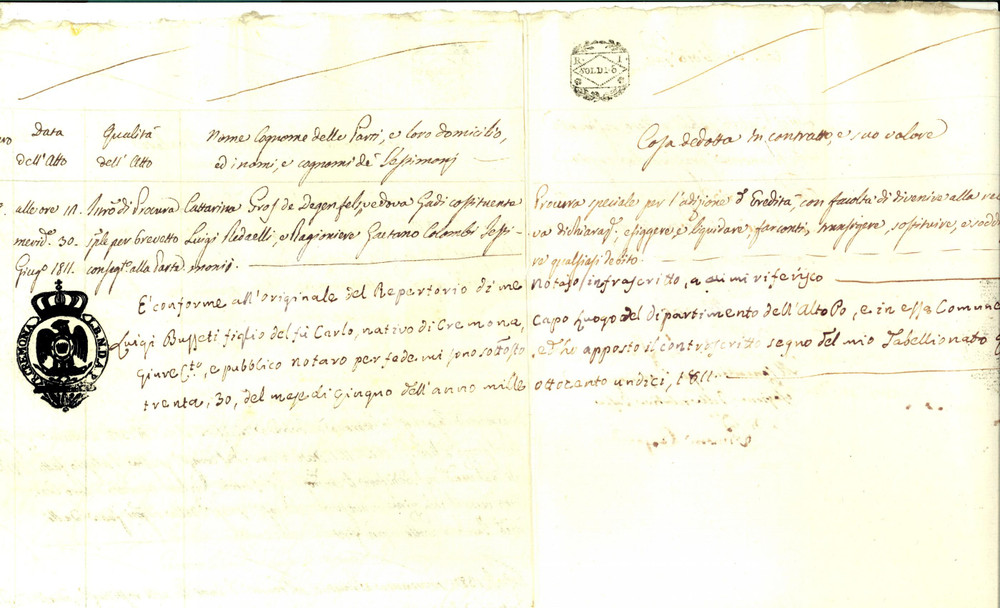 R. I.
SOLDI 6
Data dell'Atto
Qualità dell'Atto
Nome Cognome delle Parti, e loro domicilio, ed i nomi, e cognomi de' Tessimonj
Cosa dedotta in contratto, e suo valore
alle ore 10. merid.e 30. Giug.o 1811.
di Procura per Brevetto conseg.ta alla Parte.
Cattarina Gros de Degenfels, vedova Gadi costituente
Luigi Redaelli, e Ragioniere Gaetano Colombi Tessi-
monij.
Procura speciale per l'adizione d'Eredità, con facoltà di divenire alla
va dichiaraz.e, esiggere, e liquidare, far conti, transigere, sostituire, e
re qualsiasi debito.
E' conforme all'originale del Repertorio di me Notaro infrascritto, a cui mi riferisco
Luigi Busseti figlio del fù Carlo, nativo di Cremona, Capo Luogo del dipartimento dell'Alto Po, e in essa Comune
e pubblico notaro per fede mi sono sottosto ed ho apposto il controscritto segno del mio Tabellionato
trenta, 30, del mese di Giugno dell'anno mille ottocento undici, 1811.
CREMONA